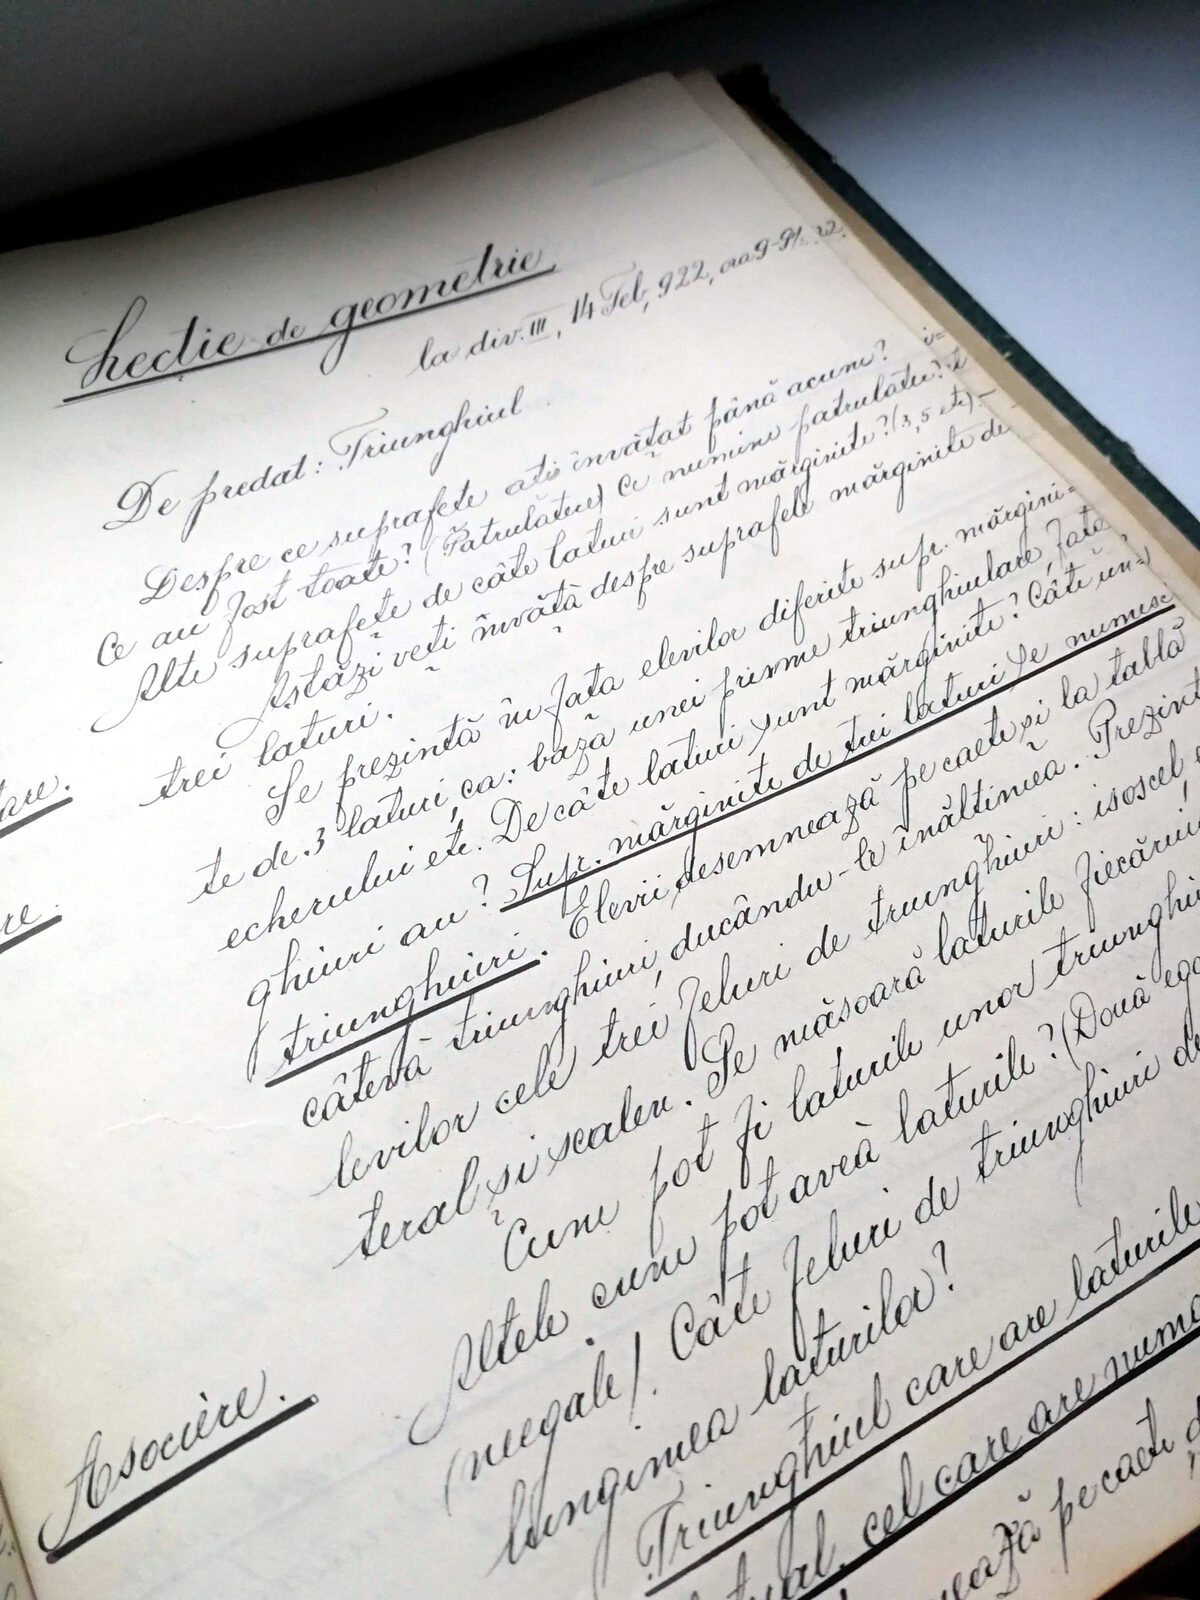 Lecție de geometrie
la div. III, 14 Feb, 922, ora 9-9½
De predat: Triunghiul
Despre ce suprafețe ați învățat până acum?
Ce au fost toate? (Patrulatere) Ce numim patrulater?
Alte suprafețe de câte laturi sunt mărginite? (3, 5 etc).-
Astăzi veți învăță despre suprafețe mărginite de
trei laturi.
Se prezintă în fața elevilor diferite supr. mărgini=
te de 3 laturi, ca: baza unei prisme triunghiulare, fața
echerului etc. De câte laturi sunt mărginite? Câte un=
ghiuri au? Supr. mărginite de trei laturi se numesc
triunghiuri. Elevii desemnează pe caete și la tablă
câtevà triunghiuri, ducându-le înălțimea. Prezint
levilor cele trei feluri de triunghiuri: isoscel,
teral și scalen. Se măsoară laturile fiecărui
Cum pot fi laturile unor triunghiu
Altele cum pot aveà laturile? (Două ega
inegale). Câte feluri de triunghiuri de
lungimea laturilor?
Asocière.
Triunghiul care are laturile
cel care are nume
ează pe caete